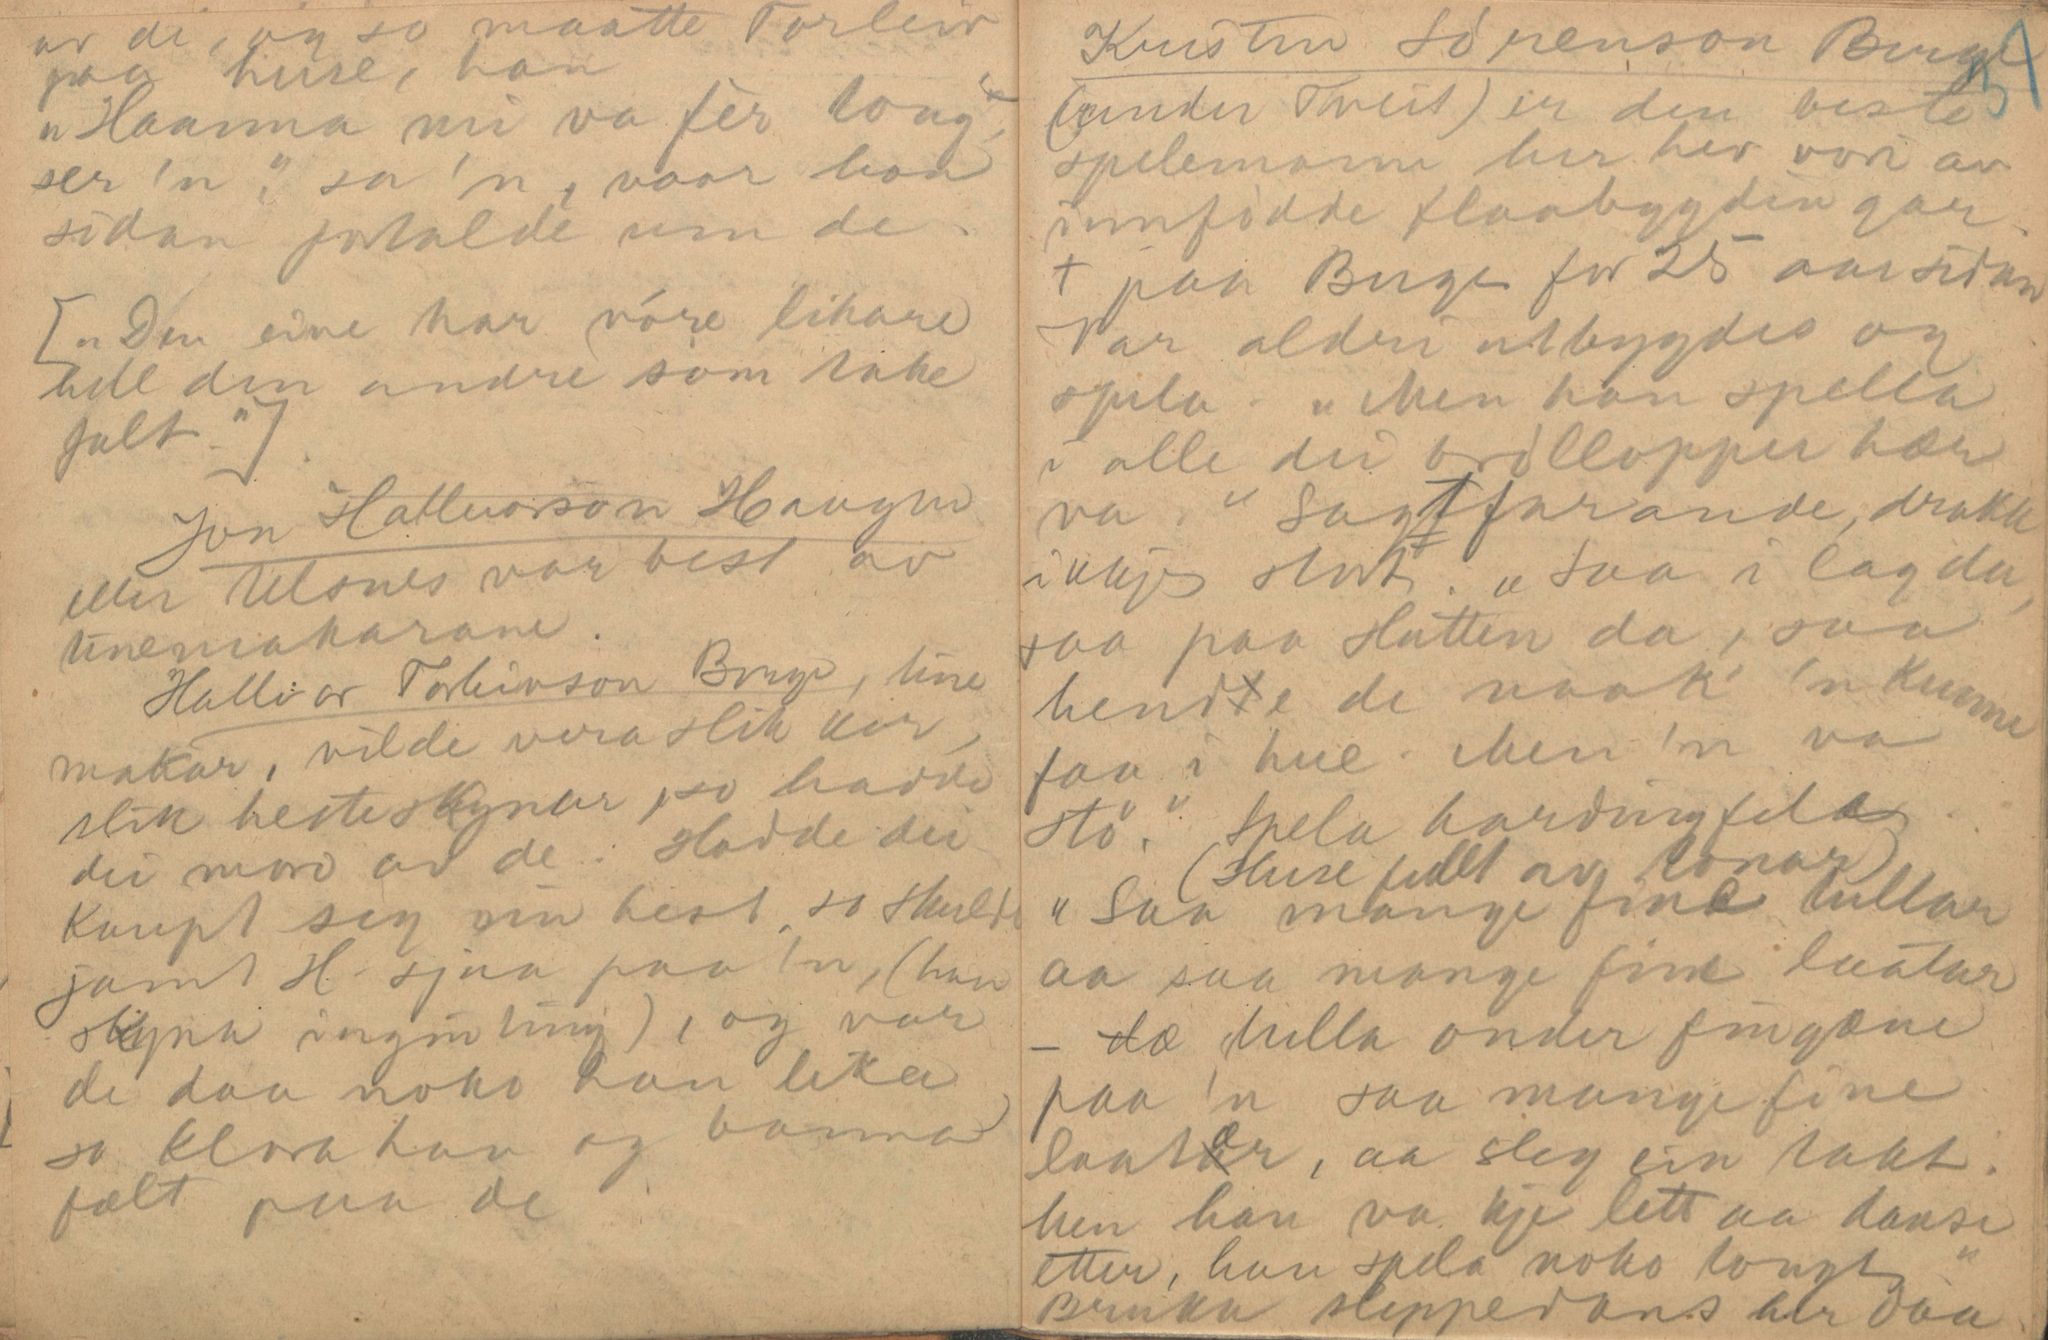 av di, og so maatte Torleiv
paa huse, han
„Haanna mi va fer tong",
ser 'n," sa 'n, naar han
sidan fortalde um de.
[„Den eine har vóre likare
hell den andre som take
falt."]
Jon Hallvorson Haugen
eller Ulsnes var best av
tinemakarane.
Hallvor Torleivson Berge, tine
makar, vilde vera slik kar,
slik hesteskynar, so hadde
dei moro av de. Hadde dei
kaupt seg ein hest, so skulde
jamt H. sjaa paa 'n, (han
skyna ingin ting), og var
de daa noko han lika
so klora han og banna
fælt paa de
51
Kristen Sörenson Berge
(under Tveit) er den beste
spelemann her hev vori av
innfödde flaabygdingar.
† paa Berge for 25 aar sidan
Var aldri utbygdes og
spela. „Men han spella
i alle dei bröllopper hær
va." Sagtfarande, drakk
ikkje stort. „Saa i lag da,
saa paa Hatten da, saa
hende de naak 'n kunne
faa i hue. Men 'n va
stö." Spela hardingfela.
(Huse fullt av tonar)
„Saa mange fine tullar
aa saa mange fine laatar
– dæ tulla onder fingane
paa 'n saa mange fine
laatar, aa sleg ein takt.
Men han va kje lett aa danse
etter, han spela noko tongt."
Bruka sleppedans her daa